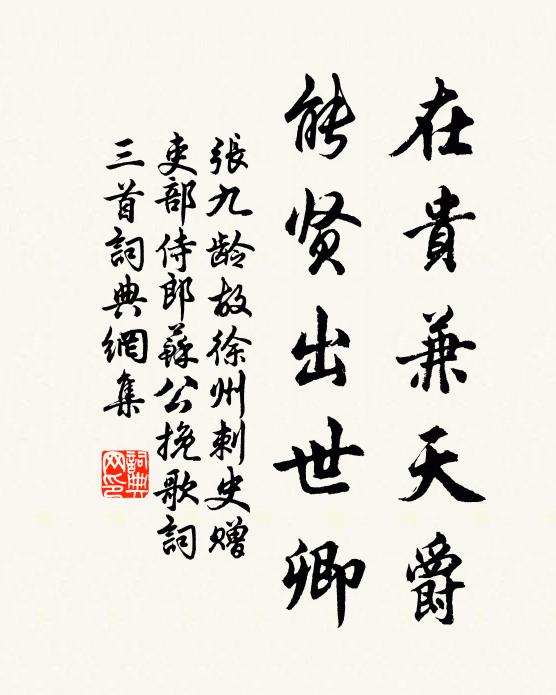 在貴兼天爵
能贤出世卿
張九龄故徐州刺史赠
吏部侍郎蘇公挽歌詞
三首詞典網集
詞典网印